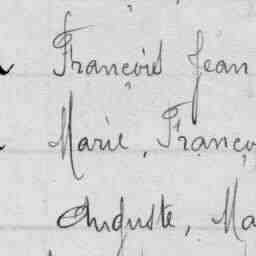 François Jean
Marie, Franço
Auguste, Ma